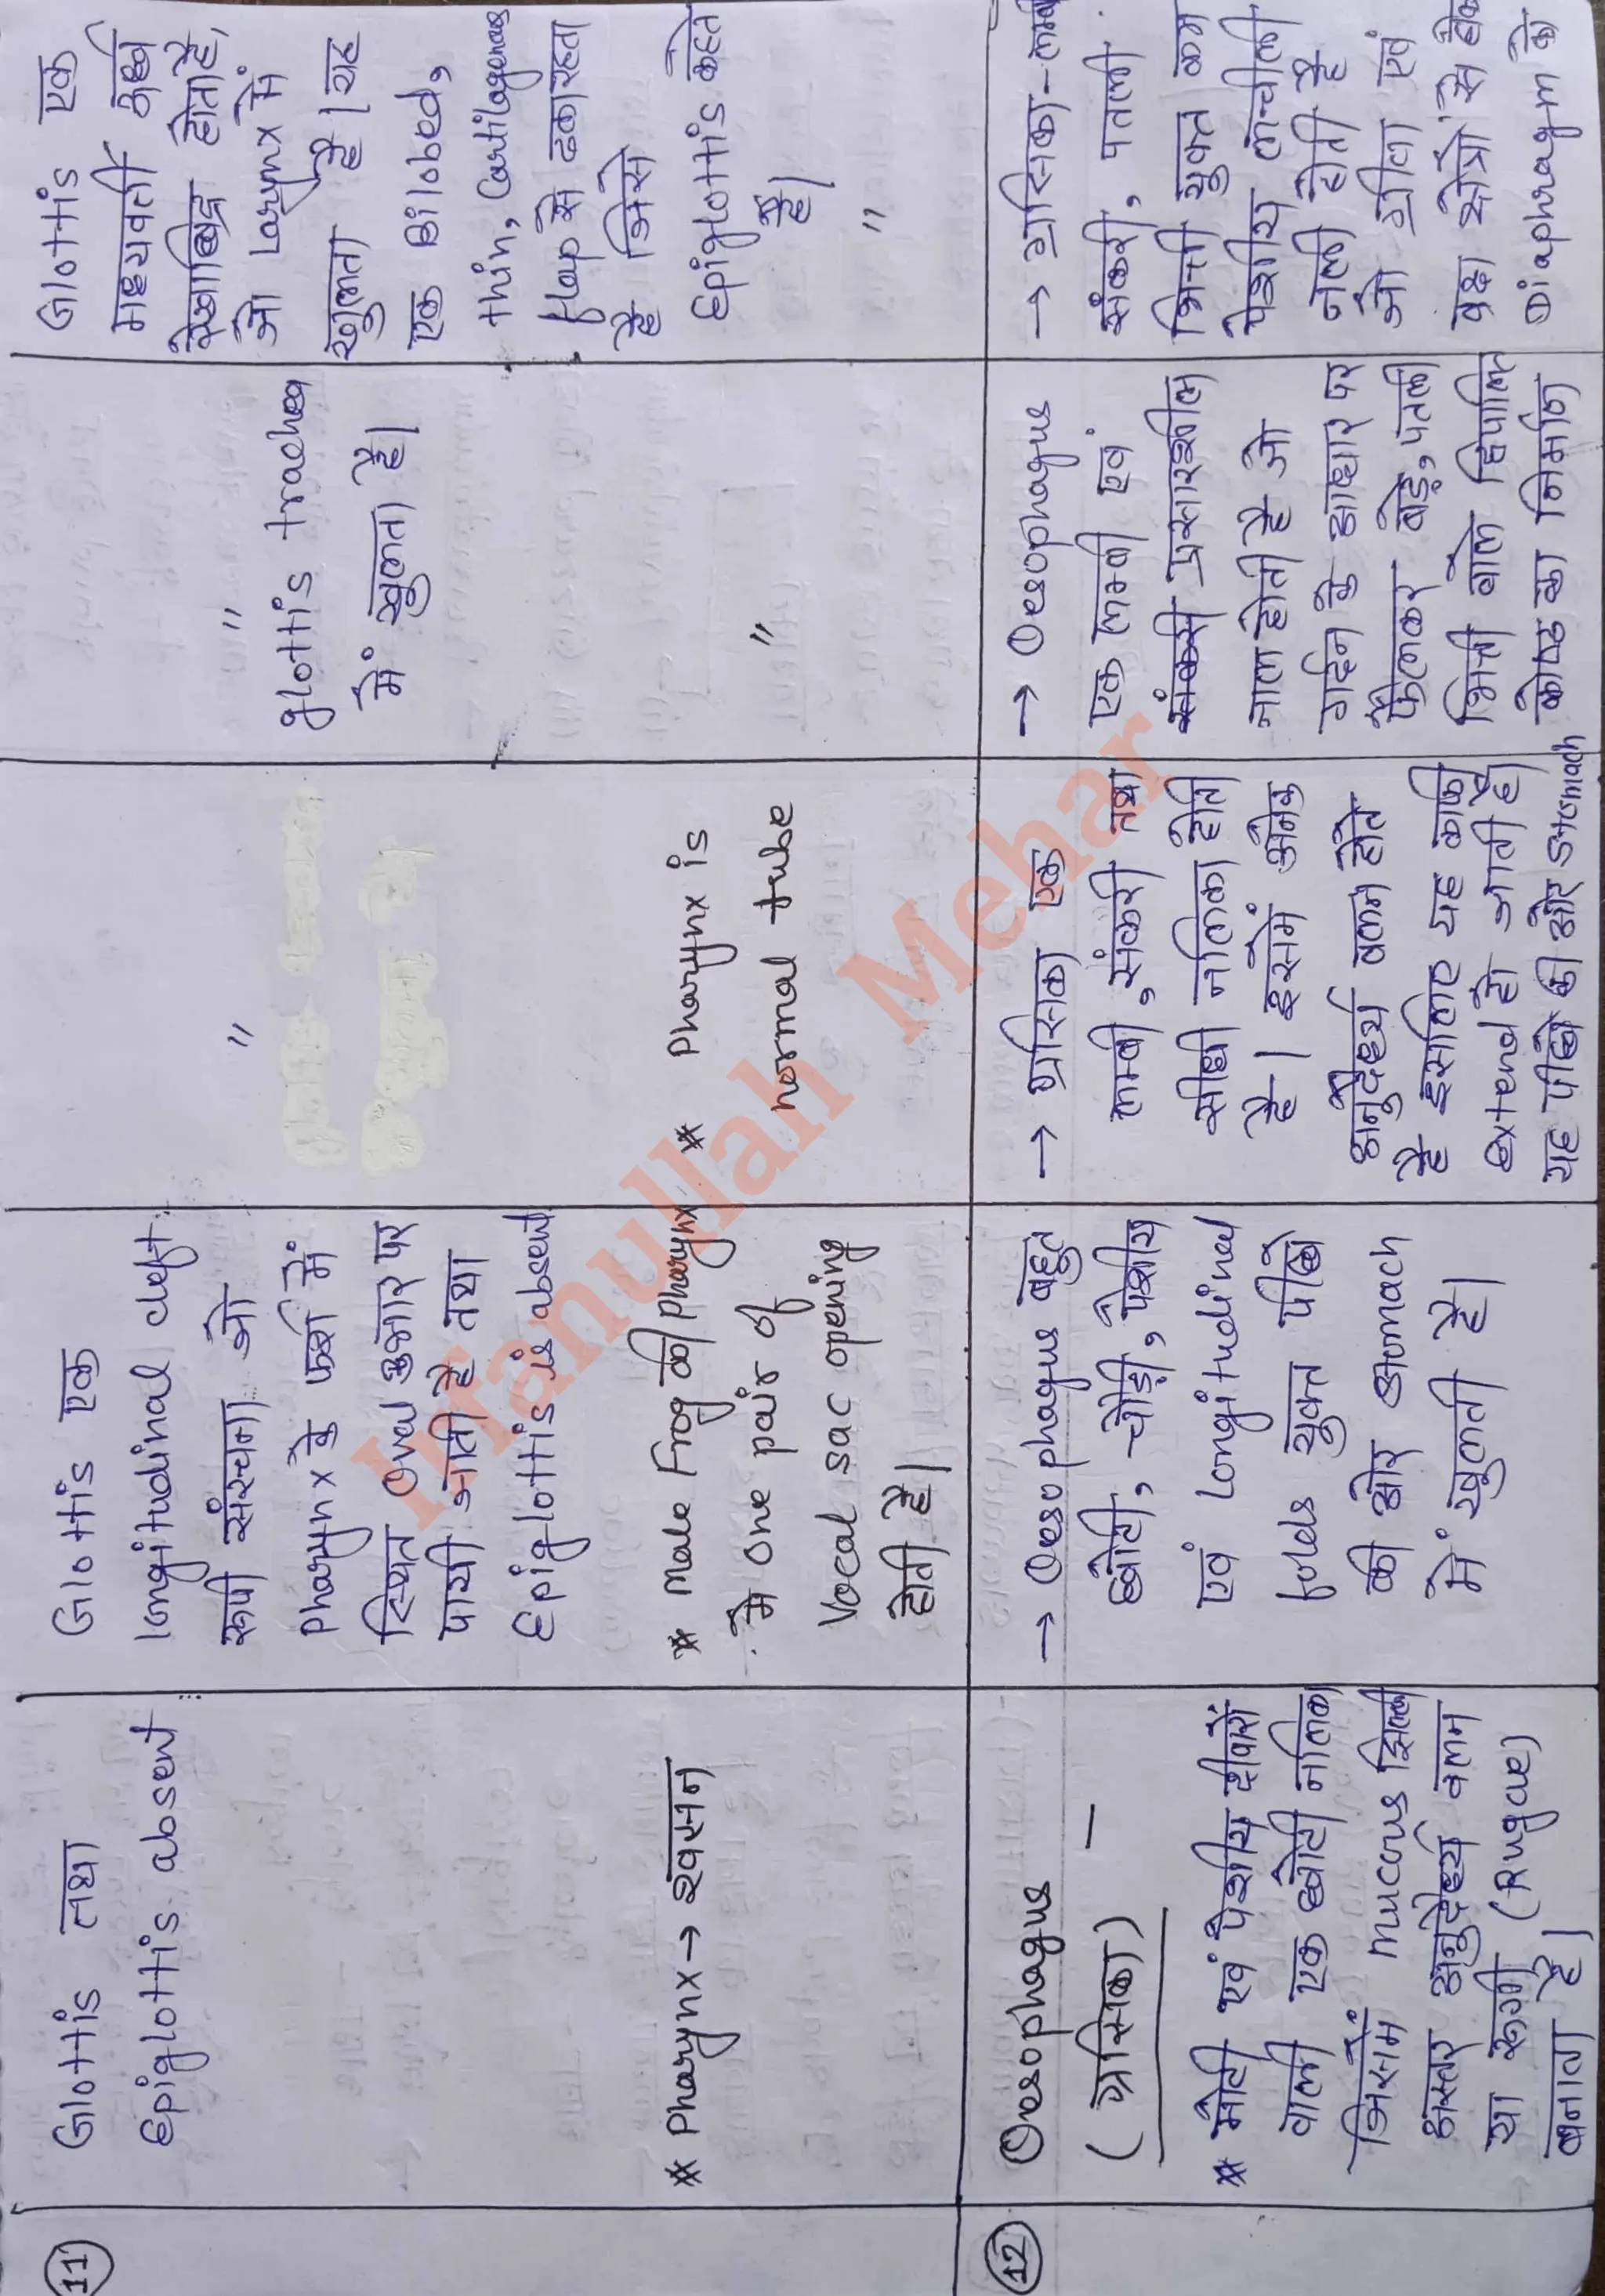 11
Glottis तथा
Epiglottis absent
* Pharynx → श्वसन
Glottis एक
longitudinal cleft
रूपी संरचना जो
Pharynx के फर्श में
स्थित Oval उभार पर
पायी जाती है तथा
Epiglottis is absent
* Male Frog की Pharynx
में one pair of
Vocal sac opening
होती है।
"
* Pharynx is
normal tube
"
glottis trachea
में खुलता है।
"
Glottis एक
मध्यवर्ती अर्ध्व
रेखाछिद्र होता है,
जो Larynx में
खुलता है। यह
एक Bilobed,
thin, Cartilagenous
flap से ढका रहता
है जिसे
Epiglottis कहते
हैं।
"
12
Oesophagus
(ग्रसिका) —
* मोटी एवं पेशीय दीवारों
वाली एक छोटी नलिका
जिसमें mucous झिल्ली
अस्तर अनुदैर्ध्य वलन
या रूगी (Rugae)
बनाता है।
→ Oesophagus बहुत
छोटी, चौड़ी, पेशीय
एवं Longitudinal
folds युक्त पीछे
की ओर stomach
में खुलती है।
→ ग्रसिका एक
लम्बी, संकरी तथा
सीधी नलिका होती
है। इसमें अनेक
अनुदैर्ध्य वलन होते
है इसलिए यह काफी
extend हो जाती है।
यह पीछे की ओर Stomach
→ Oesophagus
एक लम्बी एवं
संकरी प्रसारशील
नाल होती है जो
गर्दन के आधार पर
फैलकर बड़े, पतली
भित्ती वाले द्विपालि
क्रोप का निर्माण
→ ग्रसिका-लम्बी
संकरी, पतली
भित्ती युक्त कम
पेशीय लचीली
नली होती है
जो ग्रीवा एवं
वक्ष क्षेत्रों से होकर
Diaphragm को
Irfanullah Mehar